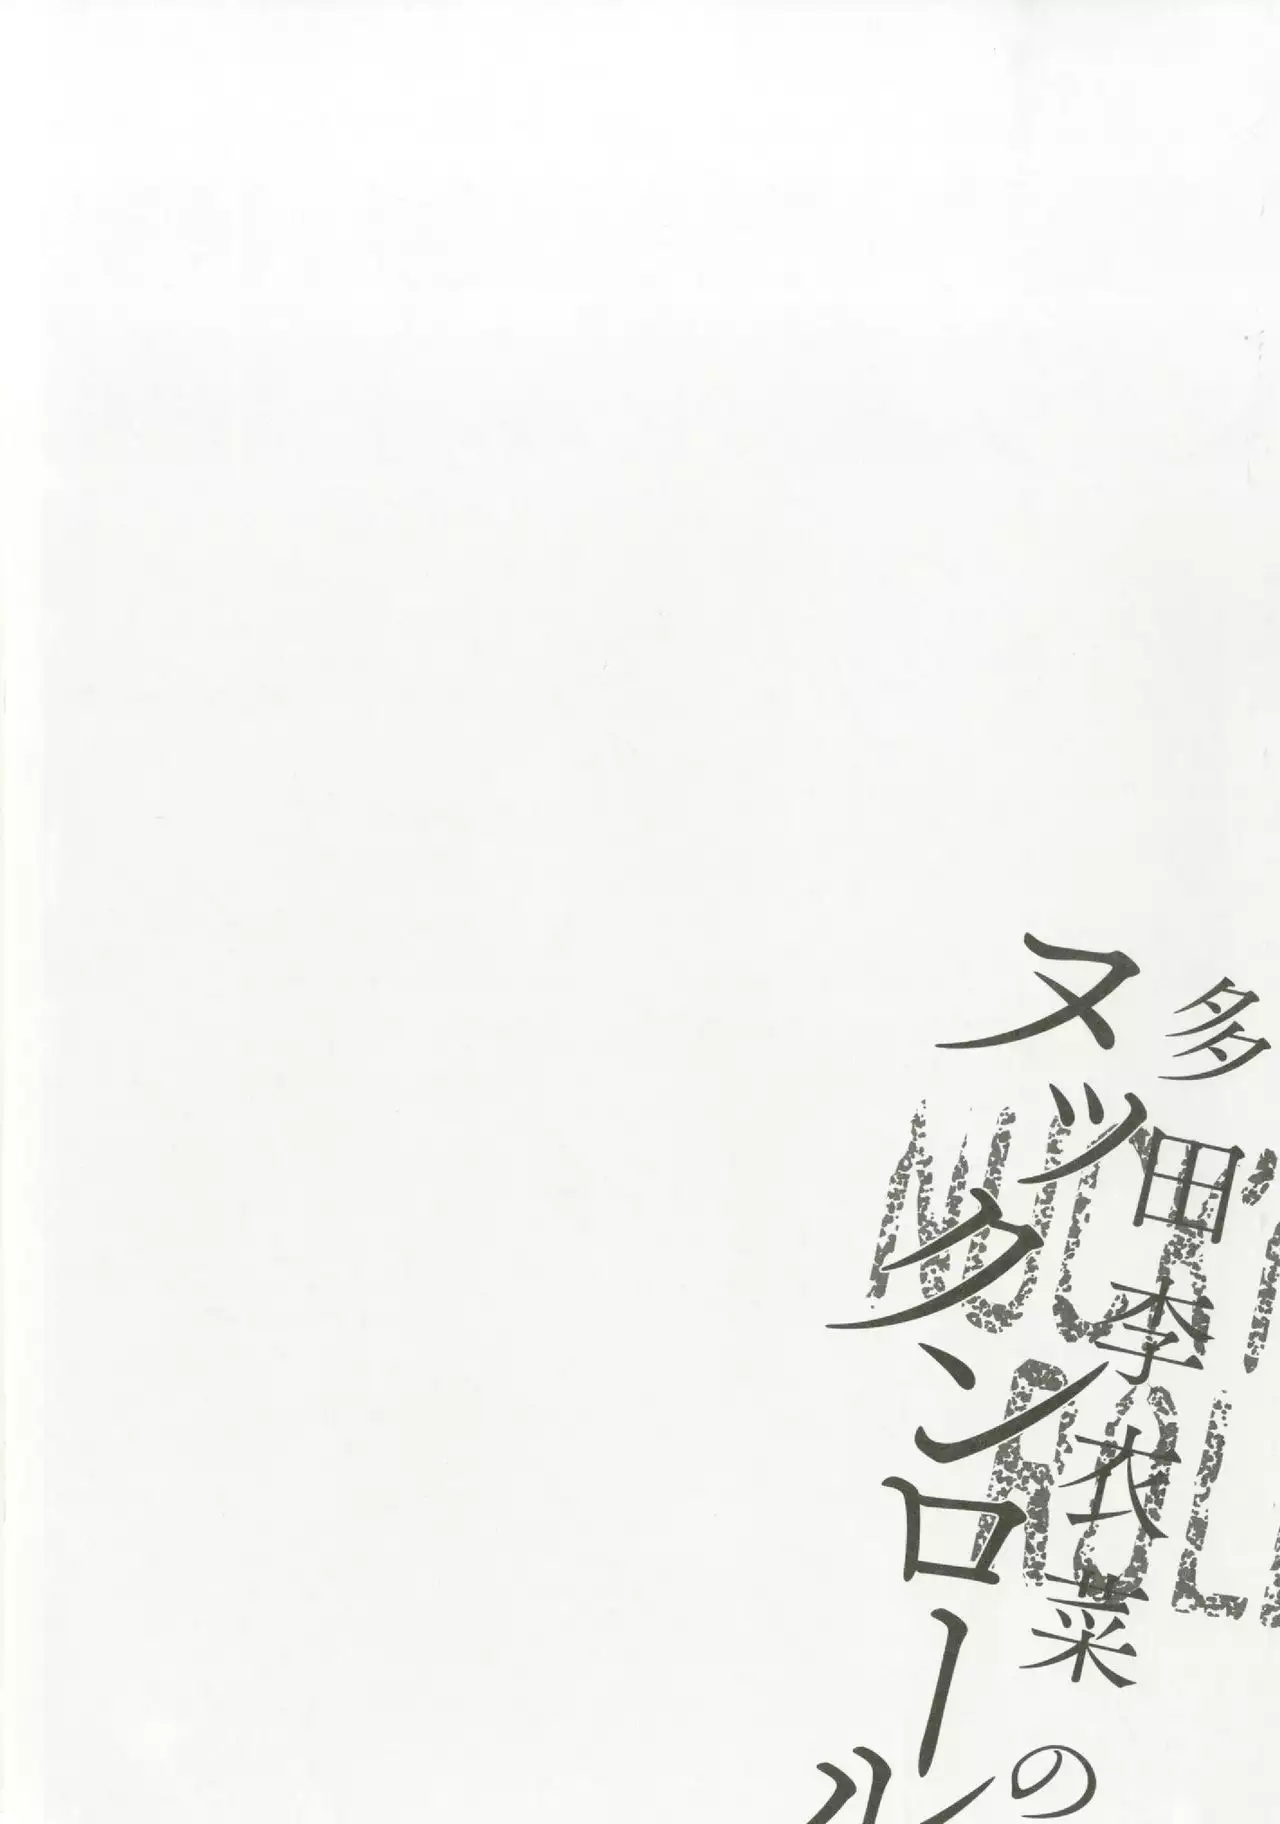 多田李衣菜の
ヌックンロール
NUCK'
ROLL